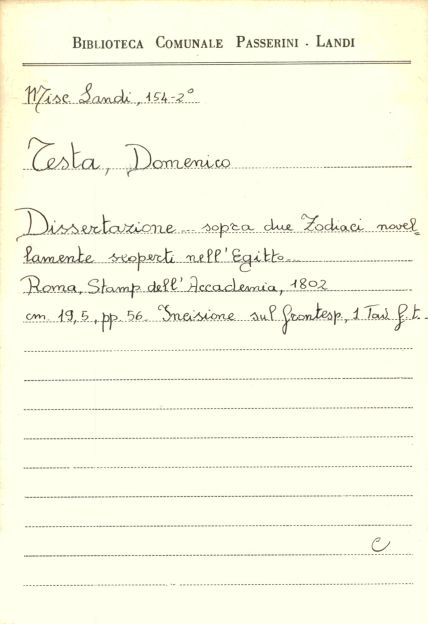 BIBLIOTECA COMUNALE PASSERINI - LANDI
Misc Landi, 154-2°
Testa, Domenico
Dissertazione ... sopra due Zodiaci novel=
lamente scoperti nell'Egitto...
Roma, Stamp. dell'Accademia, 1802
cm 19,5, pp. 56. Incisione sul frontesp, 1 Tav f. t. -
C